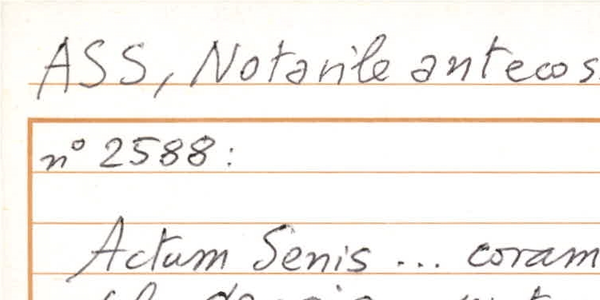 ASS, Notarile antecos
n° 2588:
Actum Senis ... coram